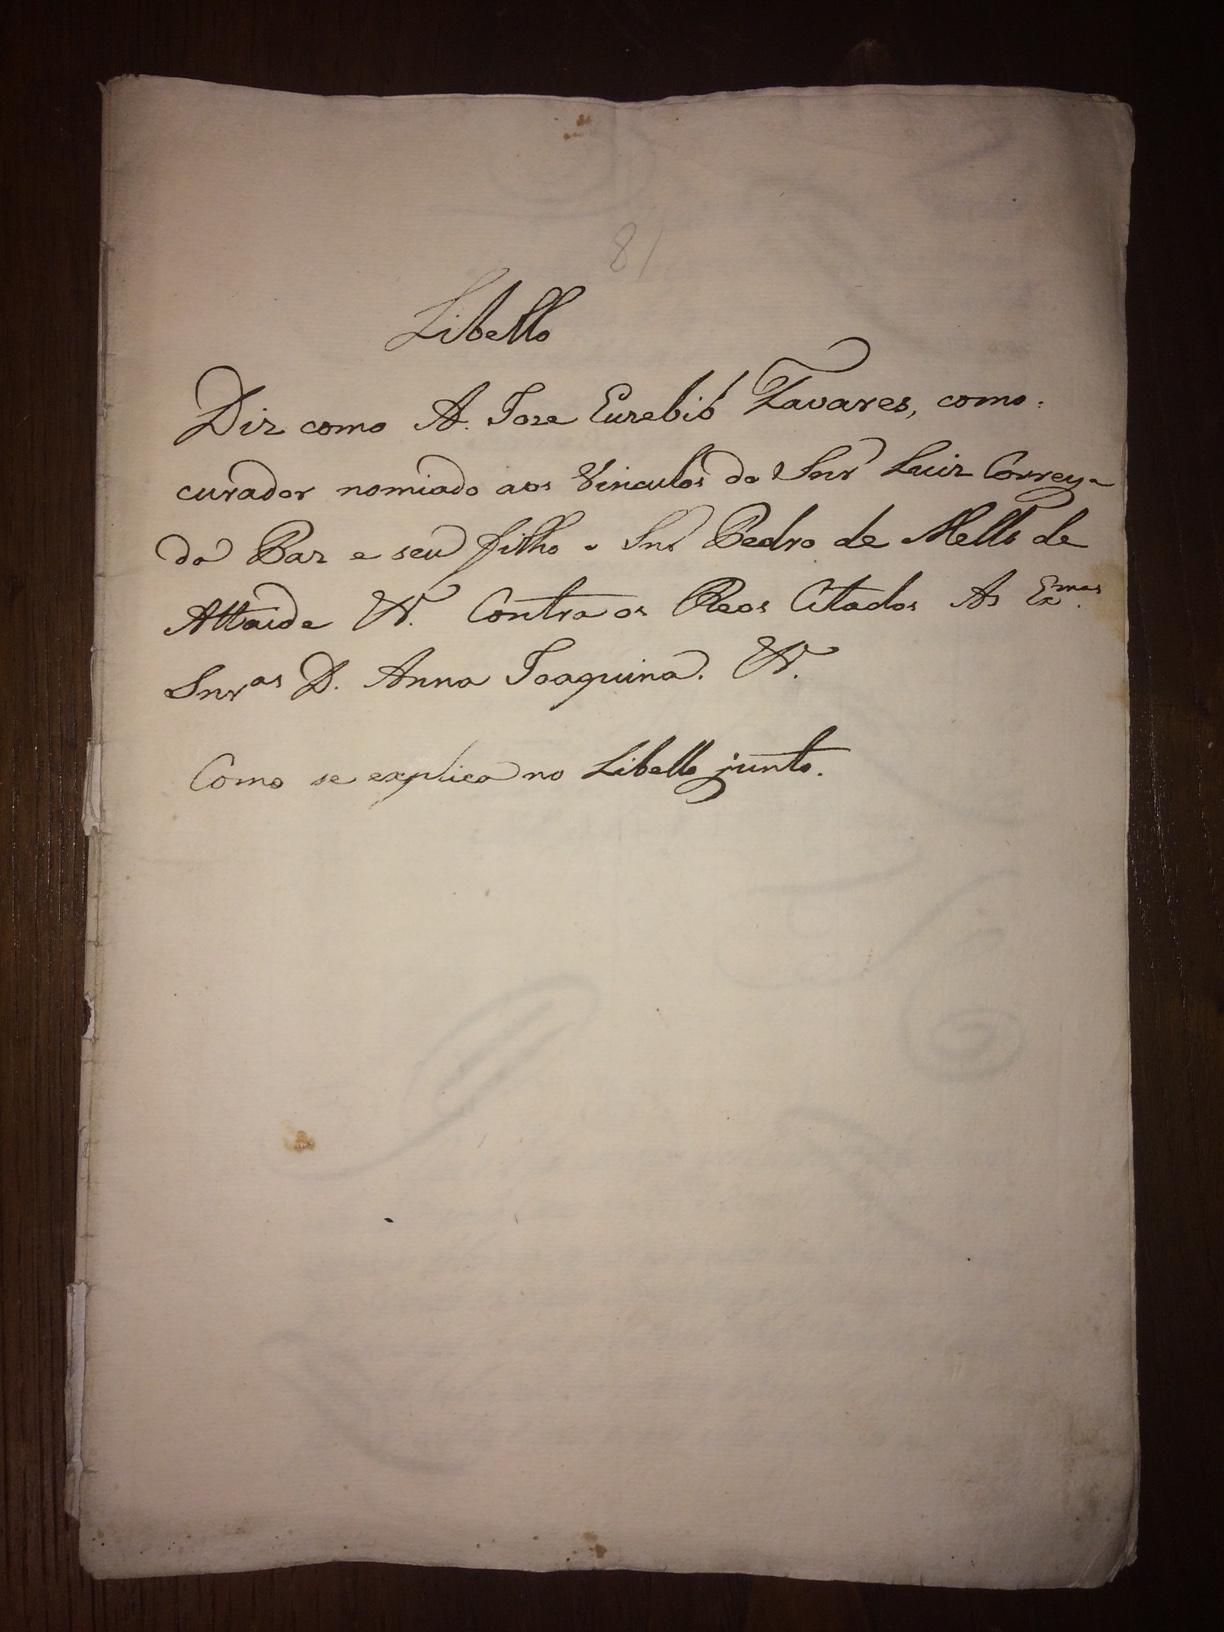 81
Libello
Diz como A. Joze Euzebio Tavares, como
curador nomiado aos Vinculos do Snr Luiz Correya
da Paz e seu filho o Snr Pedro de Mello de
Attaide &. Contra os Reos Citados As Ex.mas
Snras D. Anna Joaquina. &.
Como se explica no Libello junto.